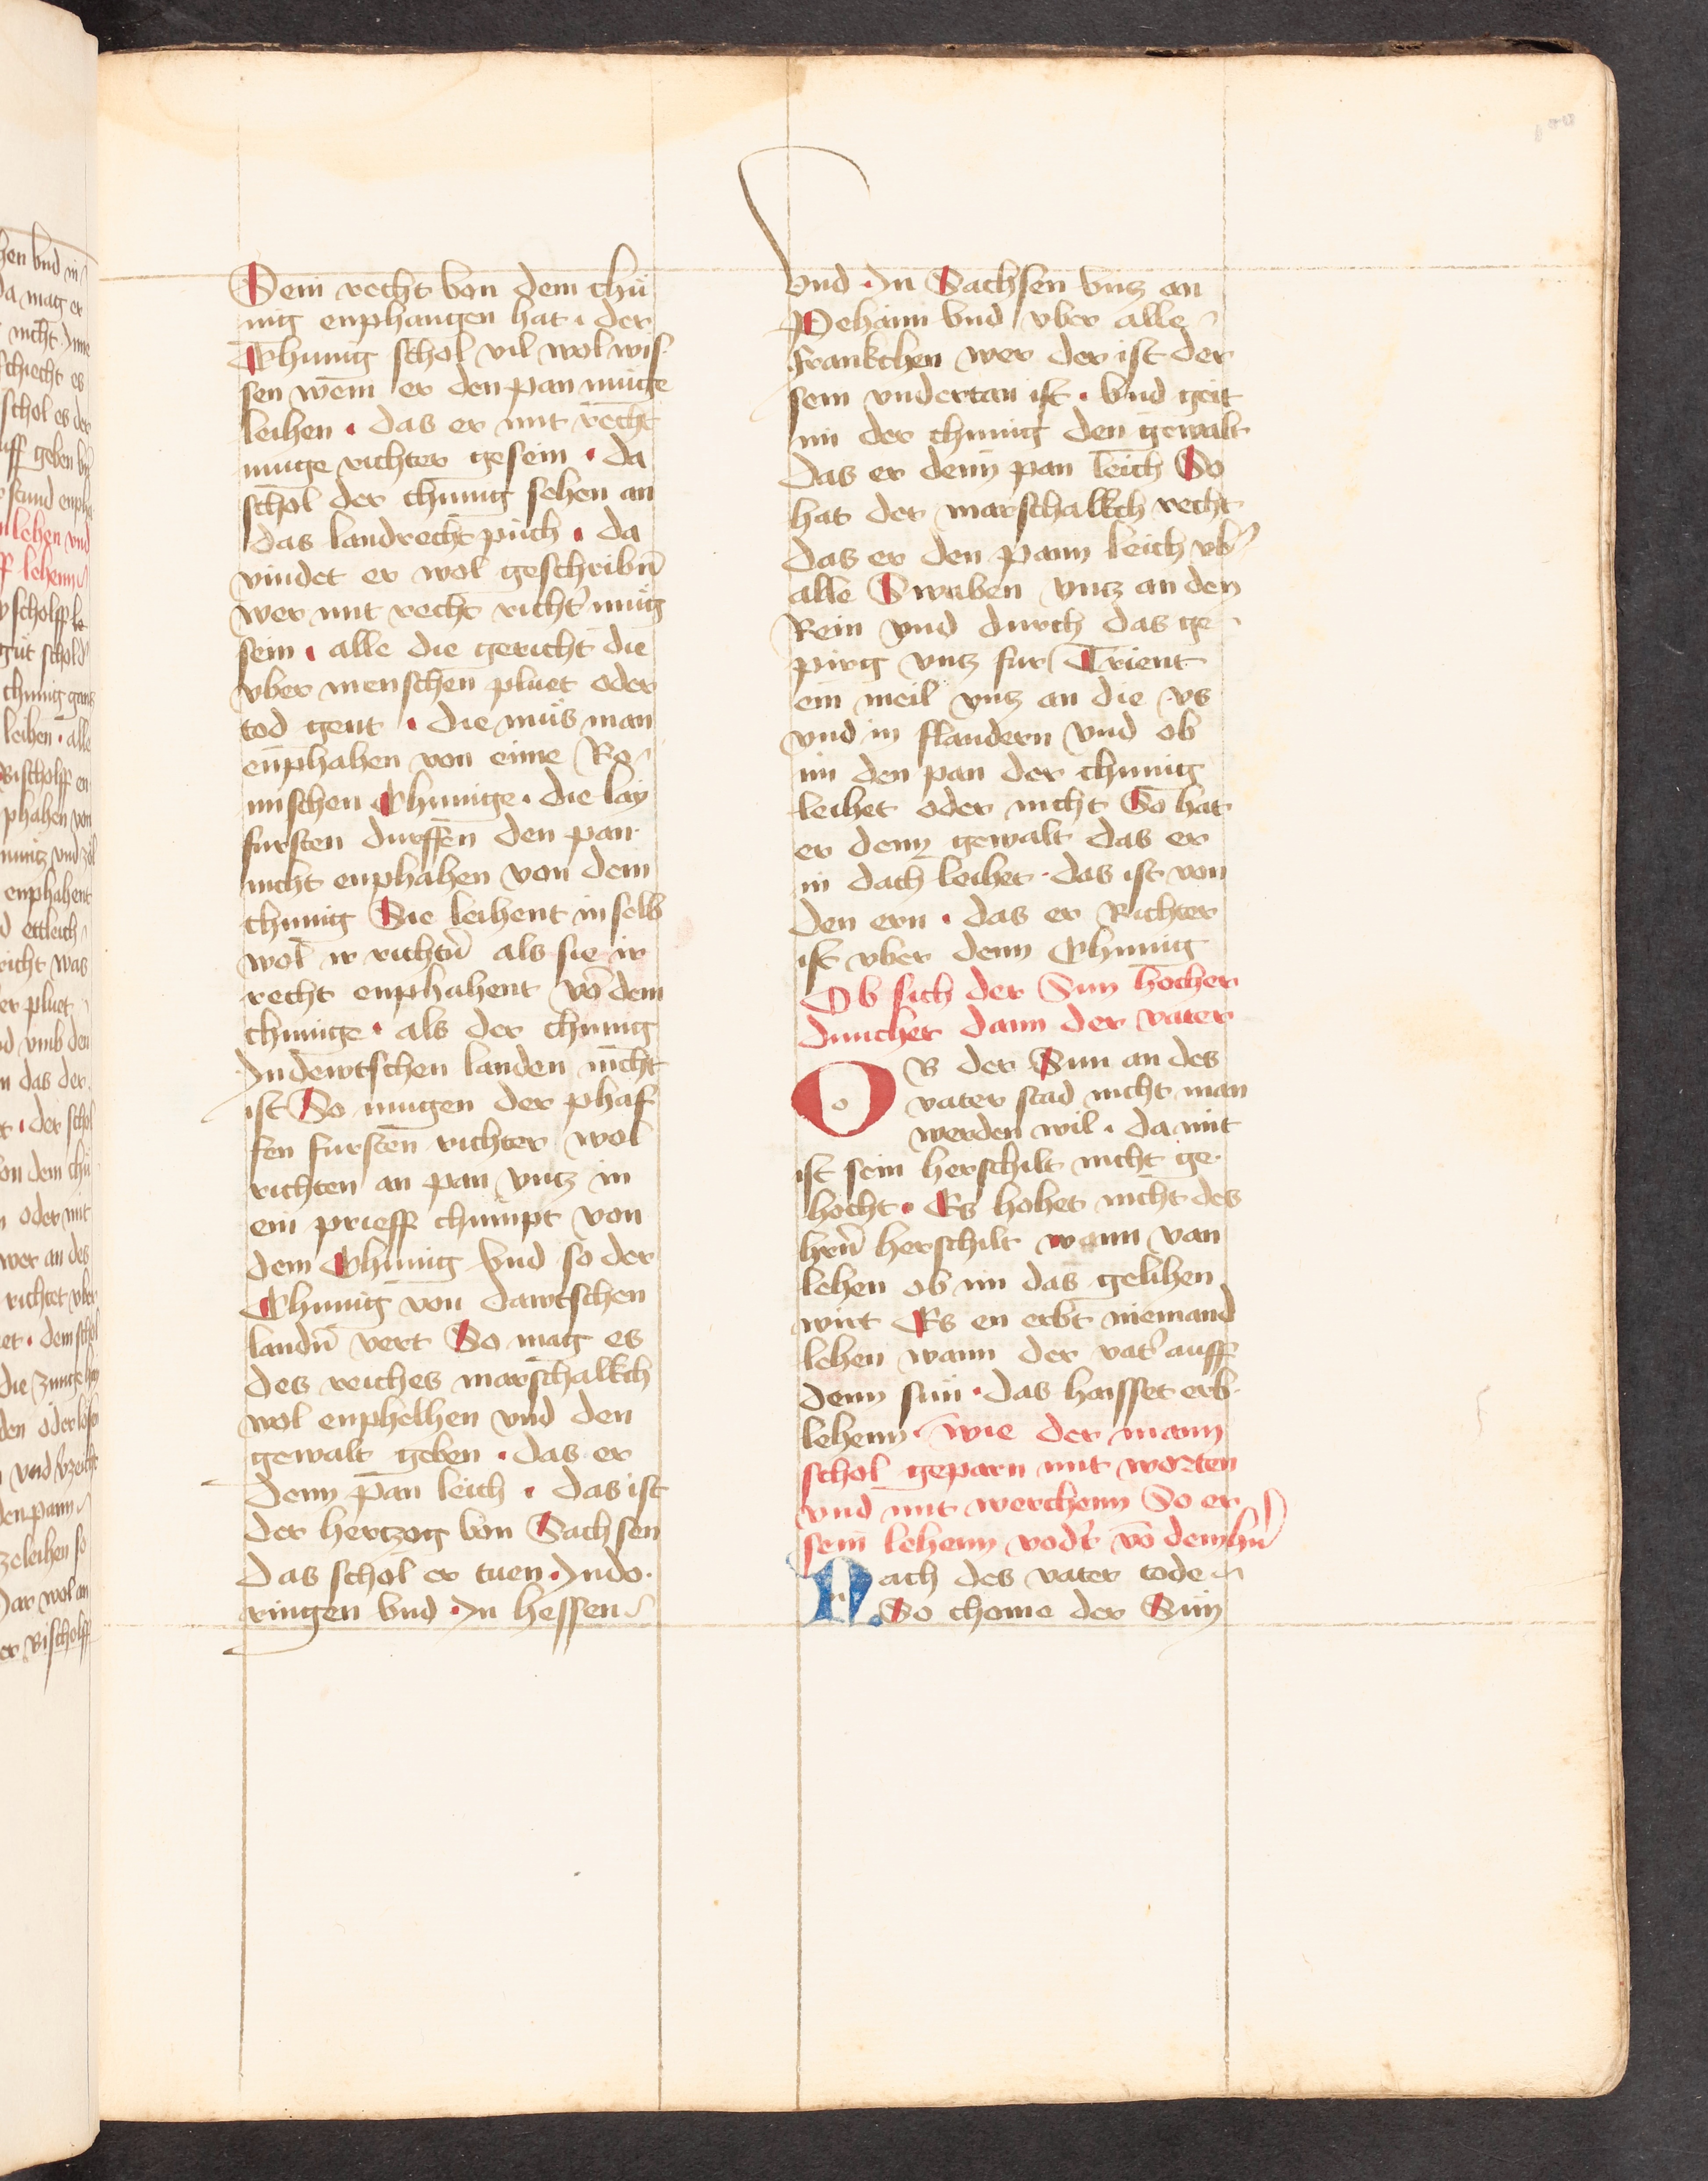 Sein recht von dem chu
nig enphangen hat . der
Chunig schol vil wol wis
sen wem er den pan muge
leihen . das er mit recht
muge richter gesein . da
schol der chunig sehen an
das landrecht puch . da
vindet er wol geschribn̄
wer mit recht richt' mug
sein . alle die gericht die
vber menschen pluet oder
tod gent . die mus man
enphahen von eime Ro
mischen Chunige . die lay
fursten durffen den pan
nicht enphahen von dem
chunig Sie leihent in selb
wol ir richtn̄ als sie ir
recht enphahent vō dem
chunige . als der chunig
In dewtschen landen nicht
ist So mugen der phaf
fen fursten richter wol
richten an pan vntz in
ein prieff chumpt von
dem Chunig vnd so der
Chunig von dawtschen
landn̄ vert So mag es
des reiches marschalkch
wol enphelhen vnd den
gewalt geben . das er
denn pan leich . das ist
der hertzog von Sachsen
das schol er tuen . In do
ringen vnd . In hessen
vnd . In Sachsen vntz an
Pehaim vnd vber alle
frankchen wer der ist der
sein vndertan ist . vnd geit
im der chunig den gewalt
das er denn pan leich So
hat der marschalkch recht
das er den pann leich vb'
alle Swaben vntz an den
Rein vnd durch das ge
pirg vntz fur Trient
ein meil vntz an die vs
vnd in flandern vnd ob
im den pan der chunig
leihet oder nicht So hat
er denn gewalt das er
in dach leihet . das ist von
den ern . das er Richter
ist vber denn Chunig
Ob sich der Sun hocher
duncher dann der vater
OB der Sun an des
vater stad nicht man
werden wil . da mit
ist sein herschilt nicht ge
hocht . Es hohet nicht des
hrn̄ herschilt wann van
lehen ob im das gelihen
wirt Es en erbt niemand
lehen wann der vat' auff
denn sun . das haisset erb
lehenn . wie der mann
schol geparn mit worten
vnd mit werchenn So er
sein lehenn vod't vō dem hn̄
Nach des vater tode
So chome der Sun